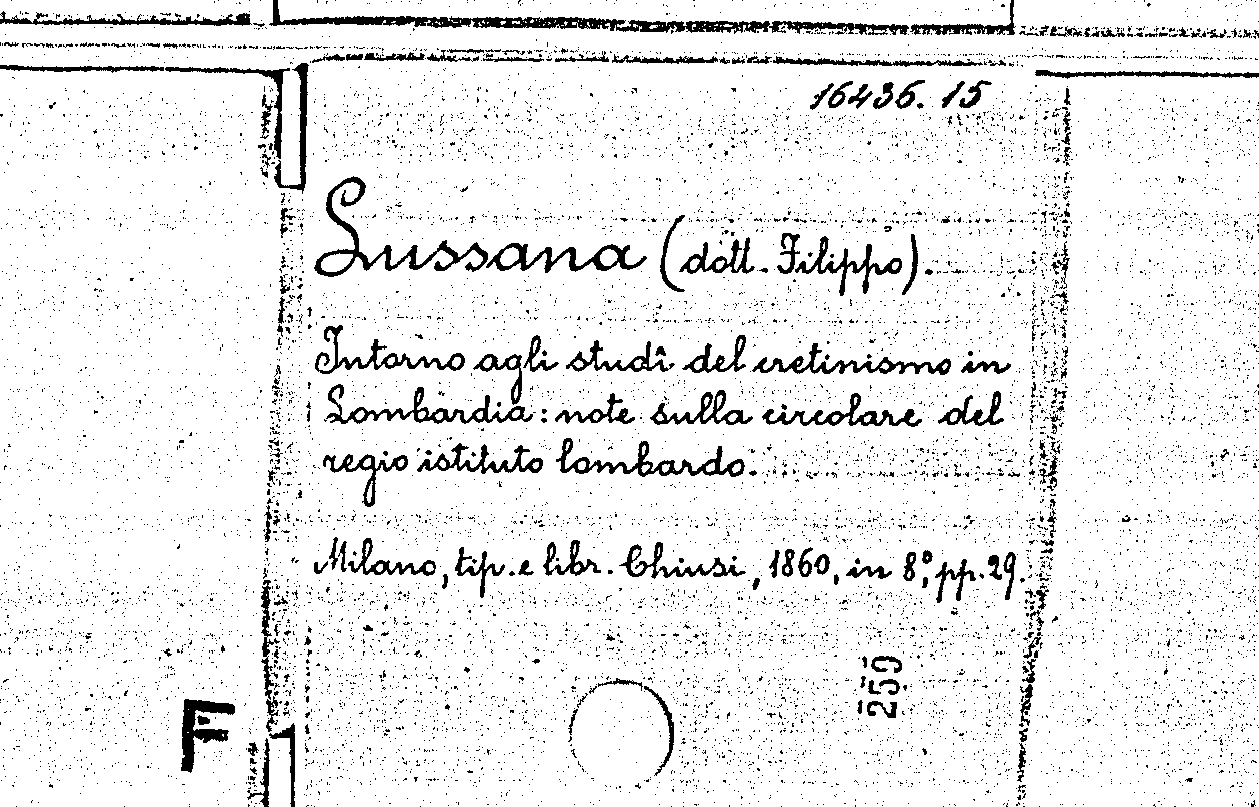 16436. 15
Lussana (dott. Filippo).
Intorno agli studî del cretinismo in
Lombardia: note sulla circolare del
regio istituto lombardo.
Milano, tip. e libr. Chiusi, 1860, in 8.°, pp. 29.
259
F